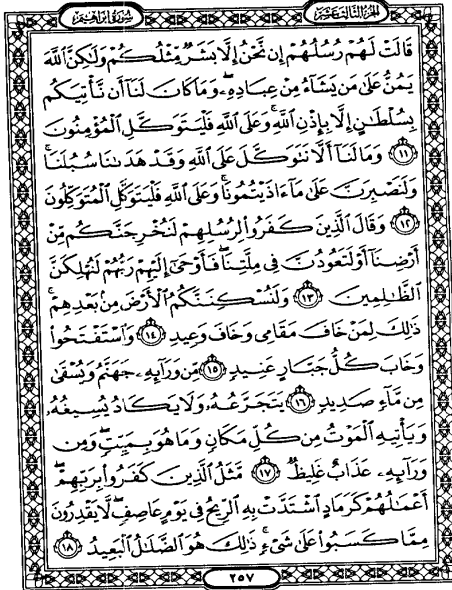 سورة إبراهيم الجزء الثالث عشر
قَالَتْ لَهُمْ رُسُلُهُمْ إِن نَّحْنُ إِلَّا بَشَرٌ مِّثْلُكُمْ وَلَٰكِنَّ ٱللَّهَ
يَمُنُّ عَلَىٰ مَن يَشَآءُ مِنْ عِبَادِهِۦ ۖ وَمَا كَانَ لَنَآ أَن نَّأْتِيَكُم
بِسُلْطَٰنٍ إِلَّا بِإِذْنِ ٱللَّهِ ۚ وَعَلَى ٱللَّهِ فَلْيَتَوَكَّلِ ٱلْمُؤْمِنُونَ
١١ وَمَا لَنَآ أَلَّا نَتَوَكَّلَ عَلَى ٱللَّهِ وَقَدْ هَدَىٰنَا سُبُلَنَا ۚ
وَلَنَصْبِرَنَّ عَلَىٰ مَآ ءَاذَيْتُمُونَا ۚ وَعَلَى ٱللَّهِ فَلْيَتَوَكَّلِ ٱلْمُتَوَكِّلُونَ
١٢ وَقَالَ ٱلَّذِينَ كَفَرُوا۟ لِرُسُلِهِمْ لَنُخْرِجَنَّكُم مِّنْ
أَرْضِنَآ أَوْ لَتَعُودُنَّ فِى مِلَّتِنَا ۖ فَأَوْحَىٰٓ إِلَيْهِمْ رَبُّهُمْ لَنُهْلِكَنَّ
ٱلظَّٰلِمِينَ ١٣ وَلَنُسْكِنَنَّكُمُ ٱلْأَرْضَ مِنۢ بَعْدِهِمْ ۚ
ذَٰلِكَ لِمَنْ خَافَ مَقَامِى وَخَافَ وَعِيدِ ١٤ وَٱسْتَفْتَحُوا۟
وَخَابَ كُلُّ جَبَّارٍ عَنِيدٍ ١٥ مِّن وَرَآئِهِۦ جَهَنَّمُ وَيُسْقَىٰ
مِن مَّآءٍ صَدِيدٍ ١٦ يَتَجَرَّعُهُۥ وَلَا يَكَادُ يُسِيغُهُۥ
وَيَأْتِيهِ ٱلْمَوْتُ مِن كُلِّ مَكَانٍ وَمَا هُوَ بِمَيِّتٍ ۖ وَمِن
وَرَآئِهِۦ عَذَابٌ غَلِيظٌ ١٧ مَّثَلُ ٱلَّذِينَ كَفَرُوا۟ بِرَبِّهِمْ ۖ
أَعْمَٰلُهُمْ كَرَمَادٍ ٱشْتَدَّتْ بِهِ ٱلرِّيحُ فِى يَوْمٍ عَاصِفٍ ۖ لَّا يَقْدِرُونَ
مِمَّا كَسَبُوا۟ عَلَىٰ شَىْءٍ ۚ ذَٰلِكَ هُوَ ٱلضَّلَٰلُ ٱلْبَعِيدُ ١٨
٢٥٧